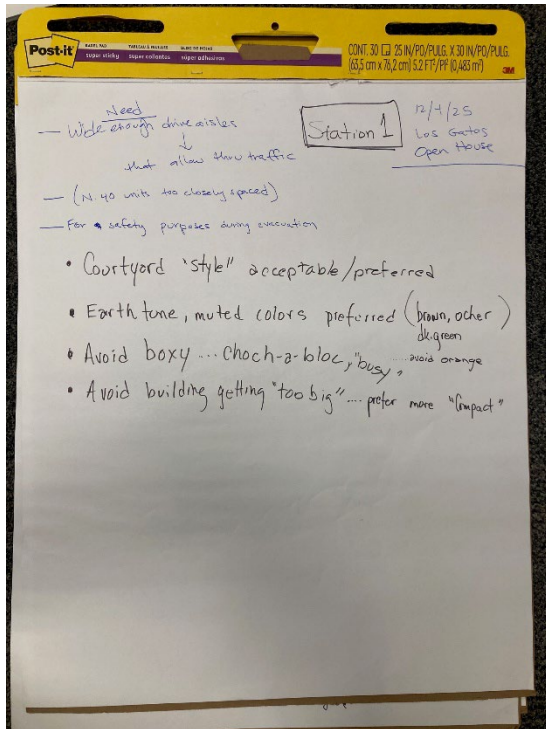 Post-it
EASEL PAD
super sticky
TABLEAU À FEUILLES
super collantes
BLOC DE HOJAS
súper adhesivas
CONT. 30 25 IN/PO/PULG. X 30 IN/PO/PULG.
(63,5 cm x 76,2 cm) 5.2 FT²/PI² (0,483 m²)
3M
Station 1
12/4/25
Los Gatos
Open House
Need
— Wide enough drive aisles
↓
that allow thru traffic
— (N. 40 units too closely spaced)
— For safety purposes during evacuation
• Courtyard "style" acceptable/preferred
• Earth tone, muted colors preferred (brown, ocher)
dk. green
• Avoid boxy ... choch-a-bloc, "busy,
.....avoid orange
• Avoid building getting "too big".... prefer more "Compact"